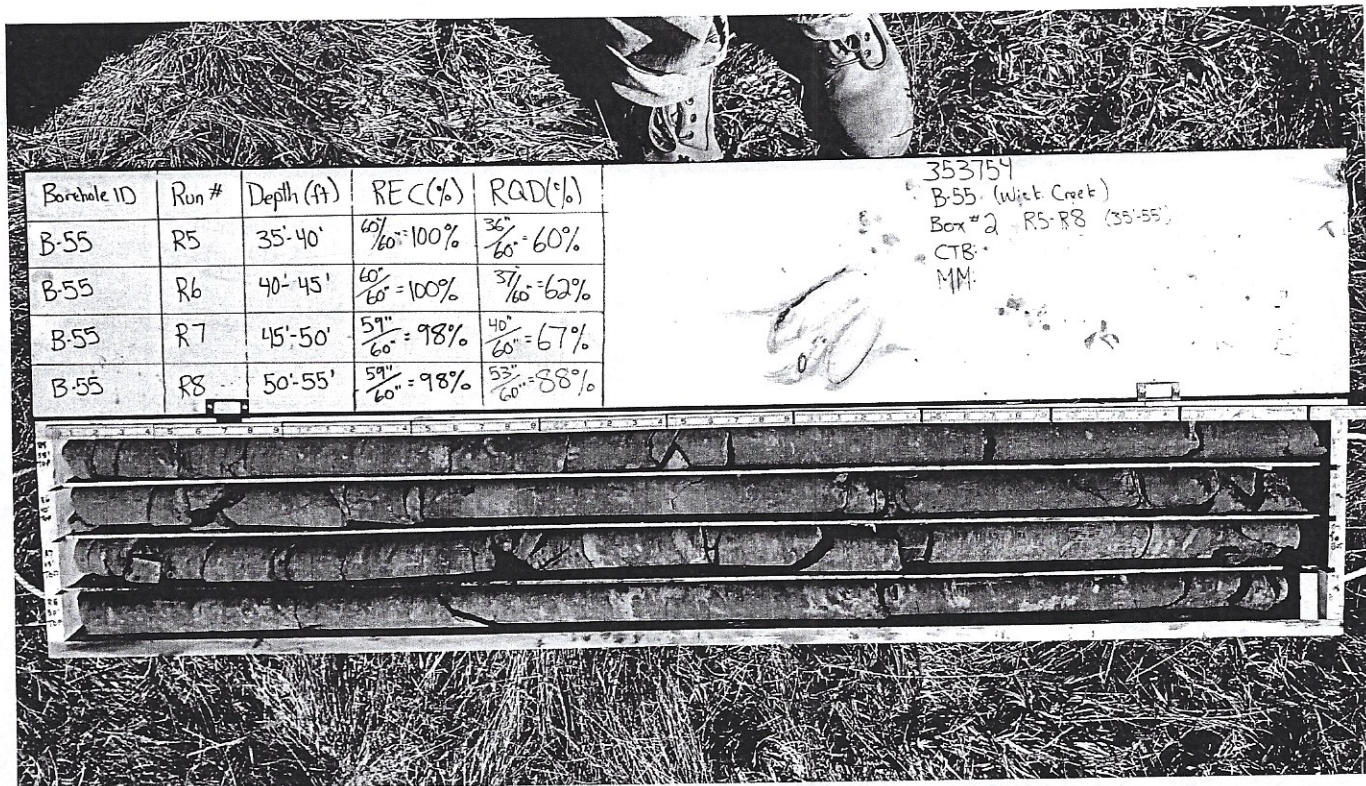 Borehole ID Run # Depth (ft) REC (%) RQD (%)
B-55 R5 35'-40' 60"/60" = 100% 36"/60" = 60%
B-55 R6 40'-45' 60"/60" = 100% 37"/60" = 62%
B-55 R7 45'-50' 59"/60" = 98% 40"/60" = 67%
B-55 R8 50'-55' 59"/60" = 98% 53"/60" = 88%
353754
B-55 (Wick Creek)
Box #2 R5-R8 (35'-55')
CTB:
MM: